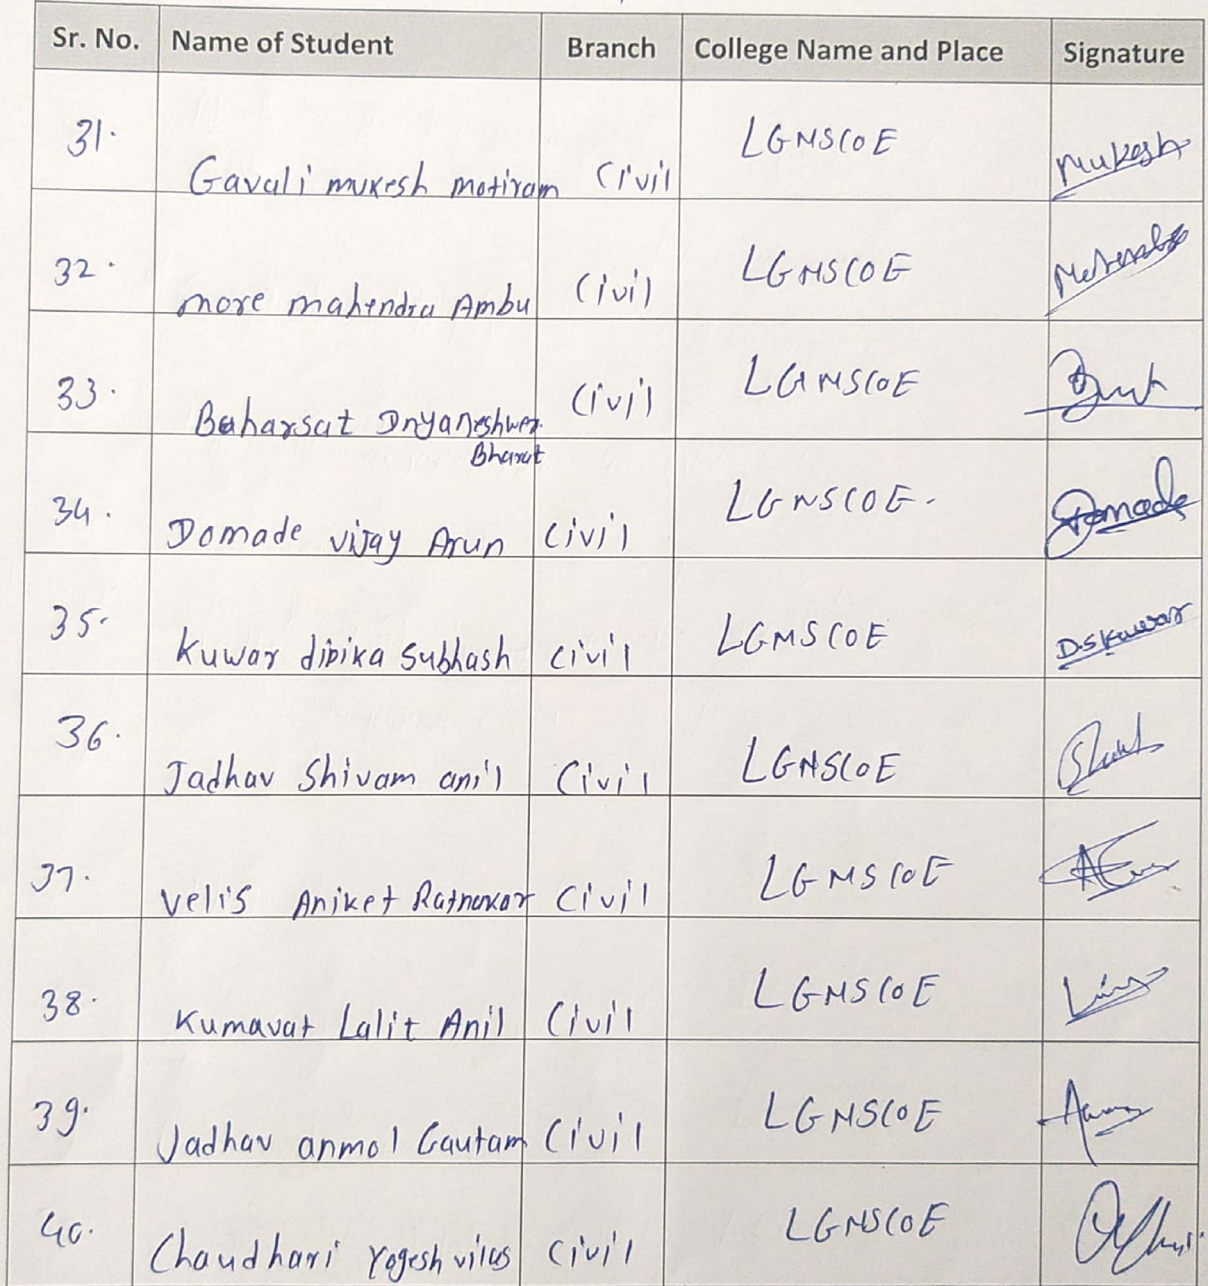 Sr. No. Name of Student Branch College Name and Place Signature
31. Gavali mukesh motiram Civil LGMSCOE Mukesh
32. more mahendra Ambu Civil LGMSCOE
33. Baharsat Dnyaneshwar Civil LGMSCOE
Bharat
34. Domade vijay Arun Civil LGMSCOE. Domade
35. Kuwar dipika Subhash Civil LGMSCOE D.S Kuwar
36. Jadhav Shivam anil Civil LGMSCOE
37. Velis Aniket Ratnakar Civil LGMSCOE
38. Kumavat Lalit Anil Civil LGMSCOE
39. Jadhav anmol Gautam Civil LGMSCOE
40. Chaudhari Yogesh vilas Civil LGMSCOE